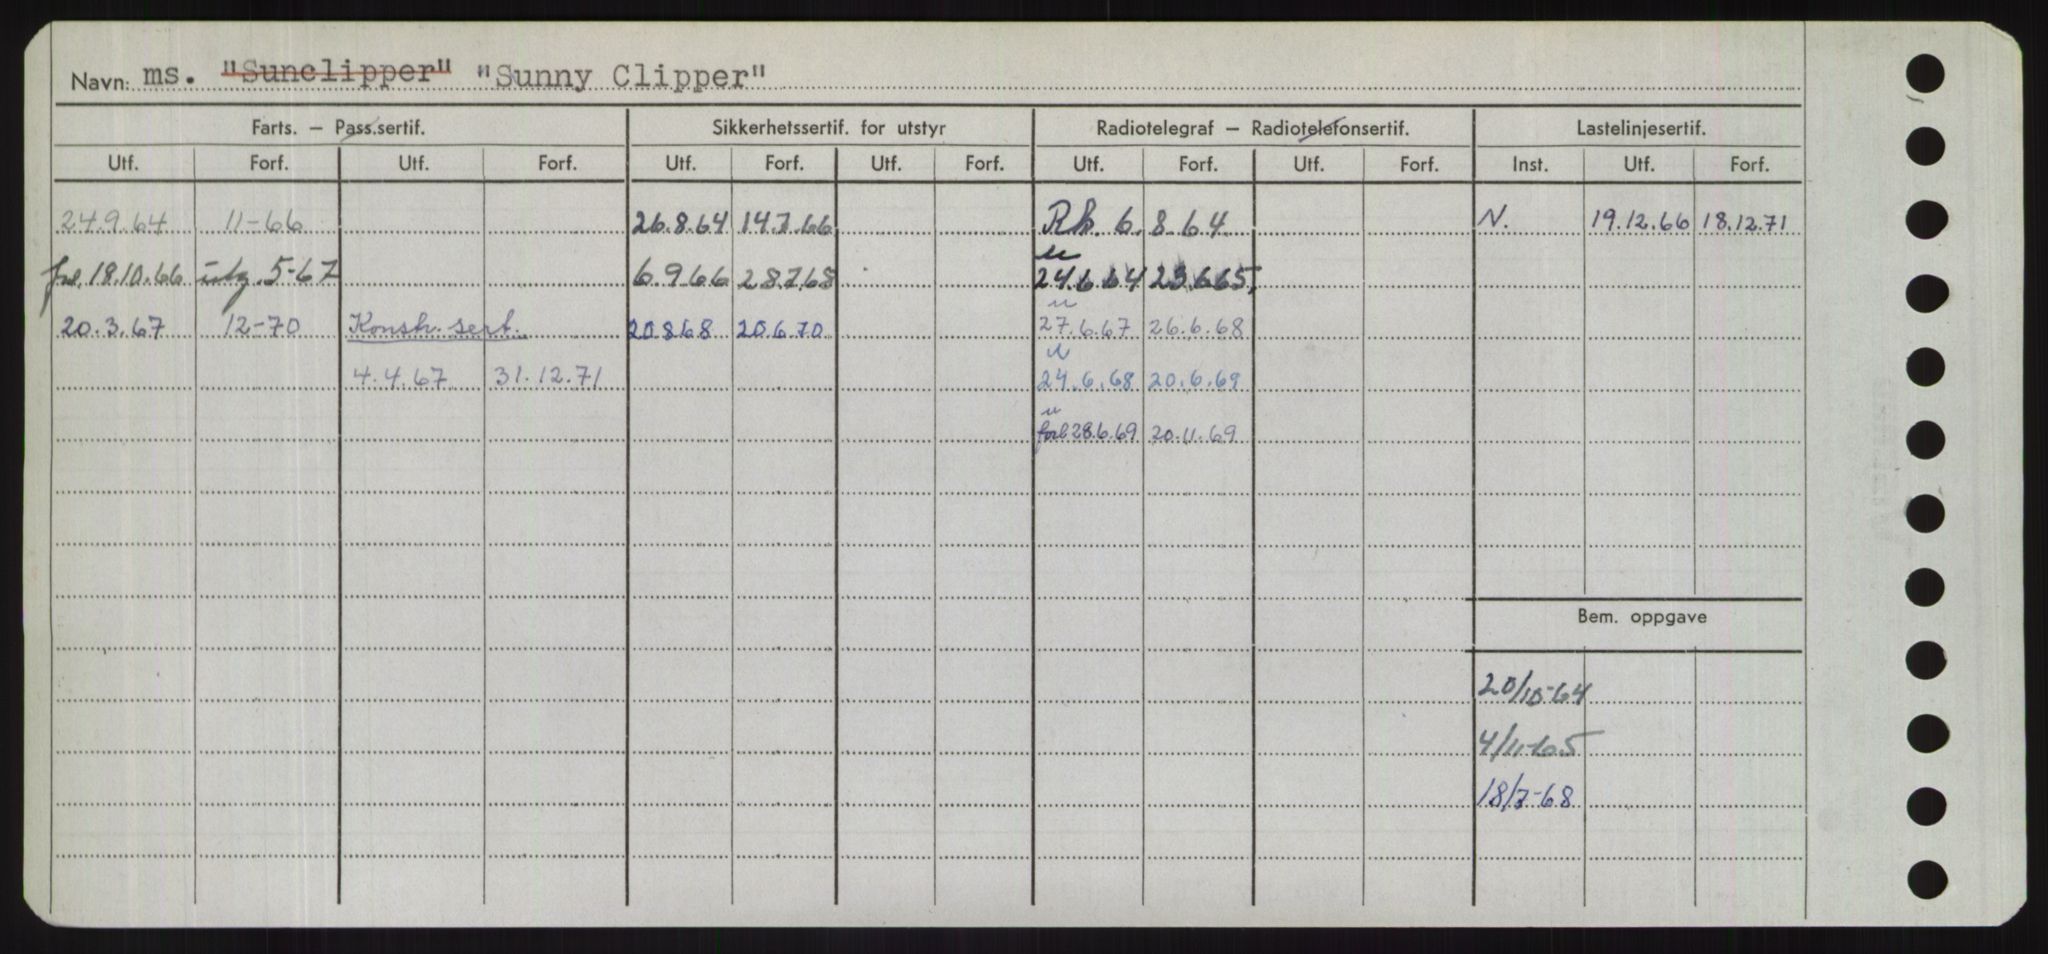 Navn: ms. "Sunclipper" "Sunny Clipper"
Farts. – Pass.sertif. Sikkerhetssertif. for utstyr Radiotelegraf – Radiotelefonsertif. Lastelinjesertif.
Utf. Forf. Utf. Forf. Utf. Forf. Utf. Forf. Utf. Forf. Utf. Forf. Inst. Utf. Forf.
24.9.64 11-66 26.8.64 14.7.66 Rk. 6.8.64 N. 19.12.66 18.12.71
18.10.66 utg. 5-67 6.9.66 28.7.68 24.6.64 23.6.65
20.3.67 12-70 Konstr. sert. 20.8.68 20.6.70 27.6.67 26.6.68
4.4.67 31.12.71 24.6.68 20.6.69
forl. 28.6.69 20.11.69
Bem. oppgave
20/10-64
4/11-65
18/7-68